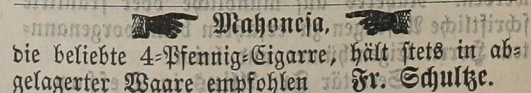 Mahoneja,
die beliebte 4-Pfennig-Cigarre, hält stets in ab-
gelagerter Waare empfohlen Fr. Schultze.